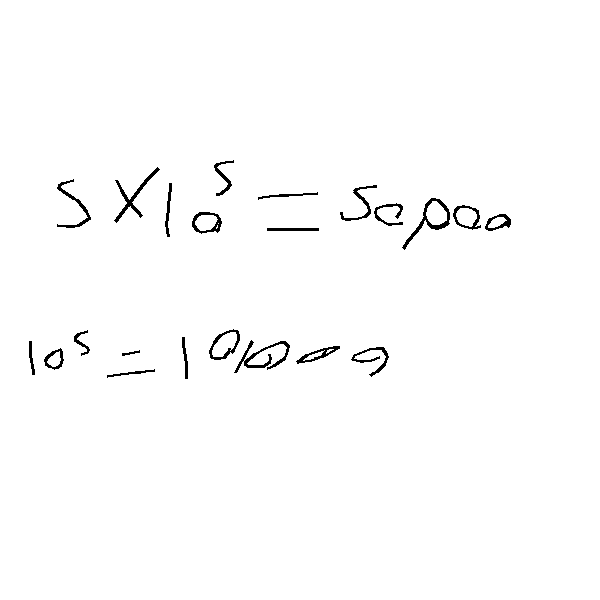 5 × 10⁵ = 50,000
10⁵ = 10,000